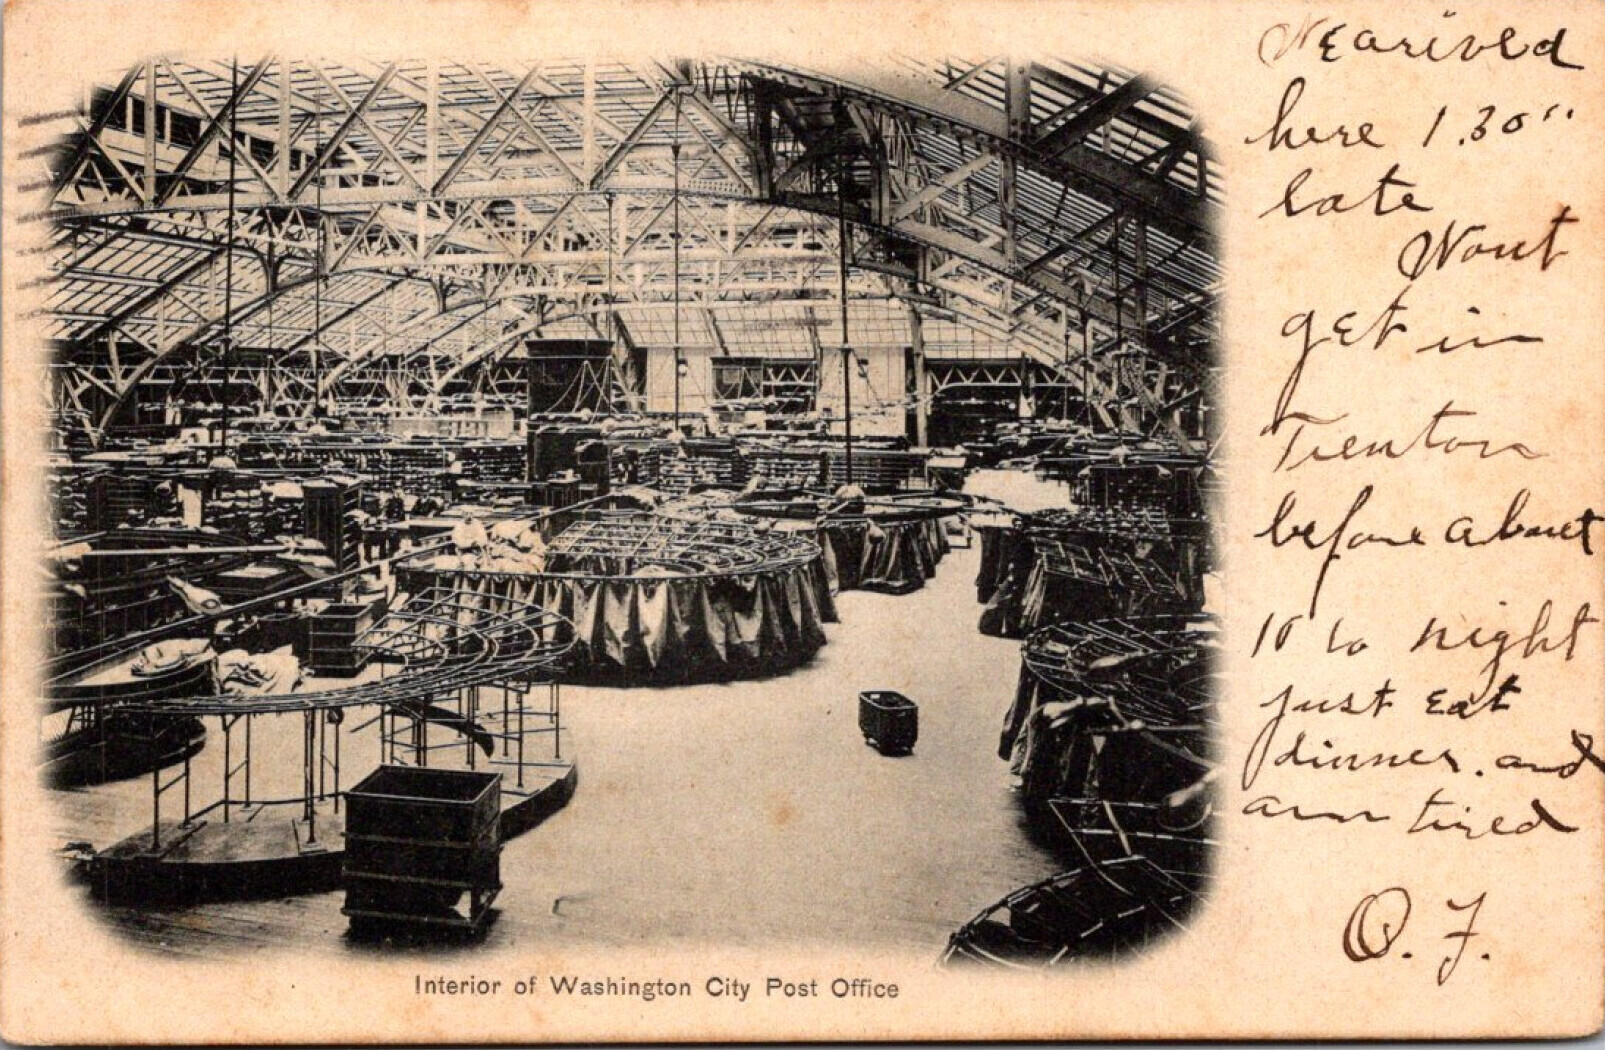 Wearived
here 1.30"
late
Wont
get in
Trenton
before about
10 to night
just eat
dinner. and
am tired
O. F.
Interior of Washington City Post Office